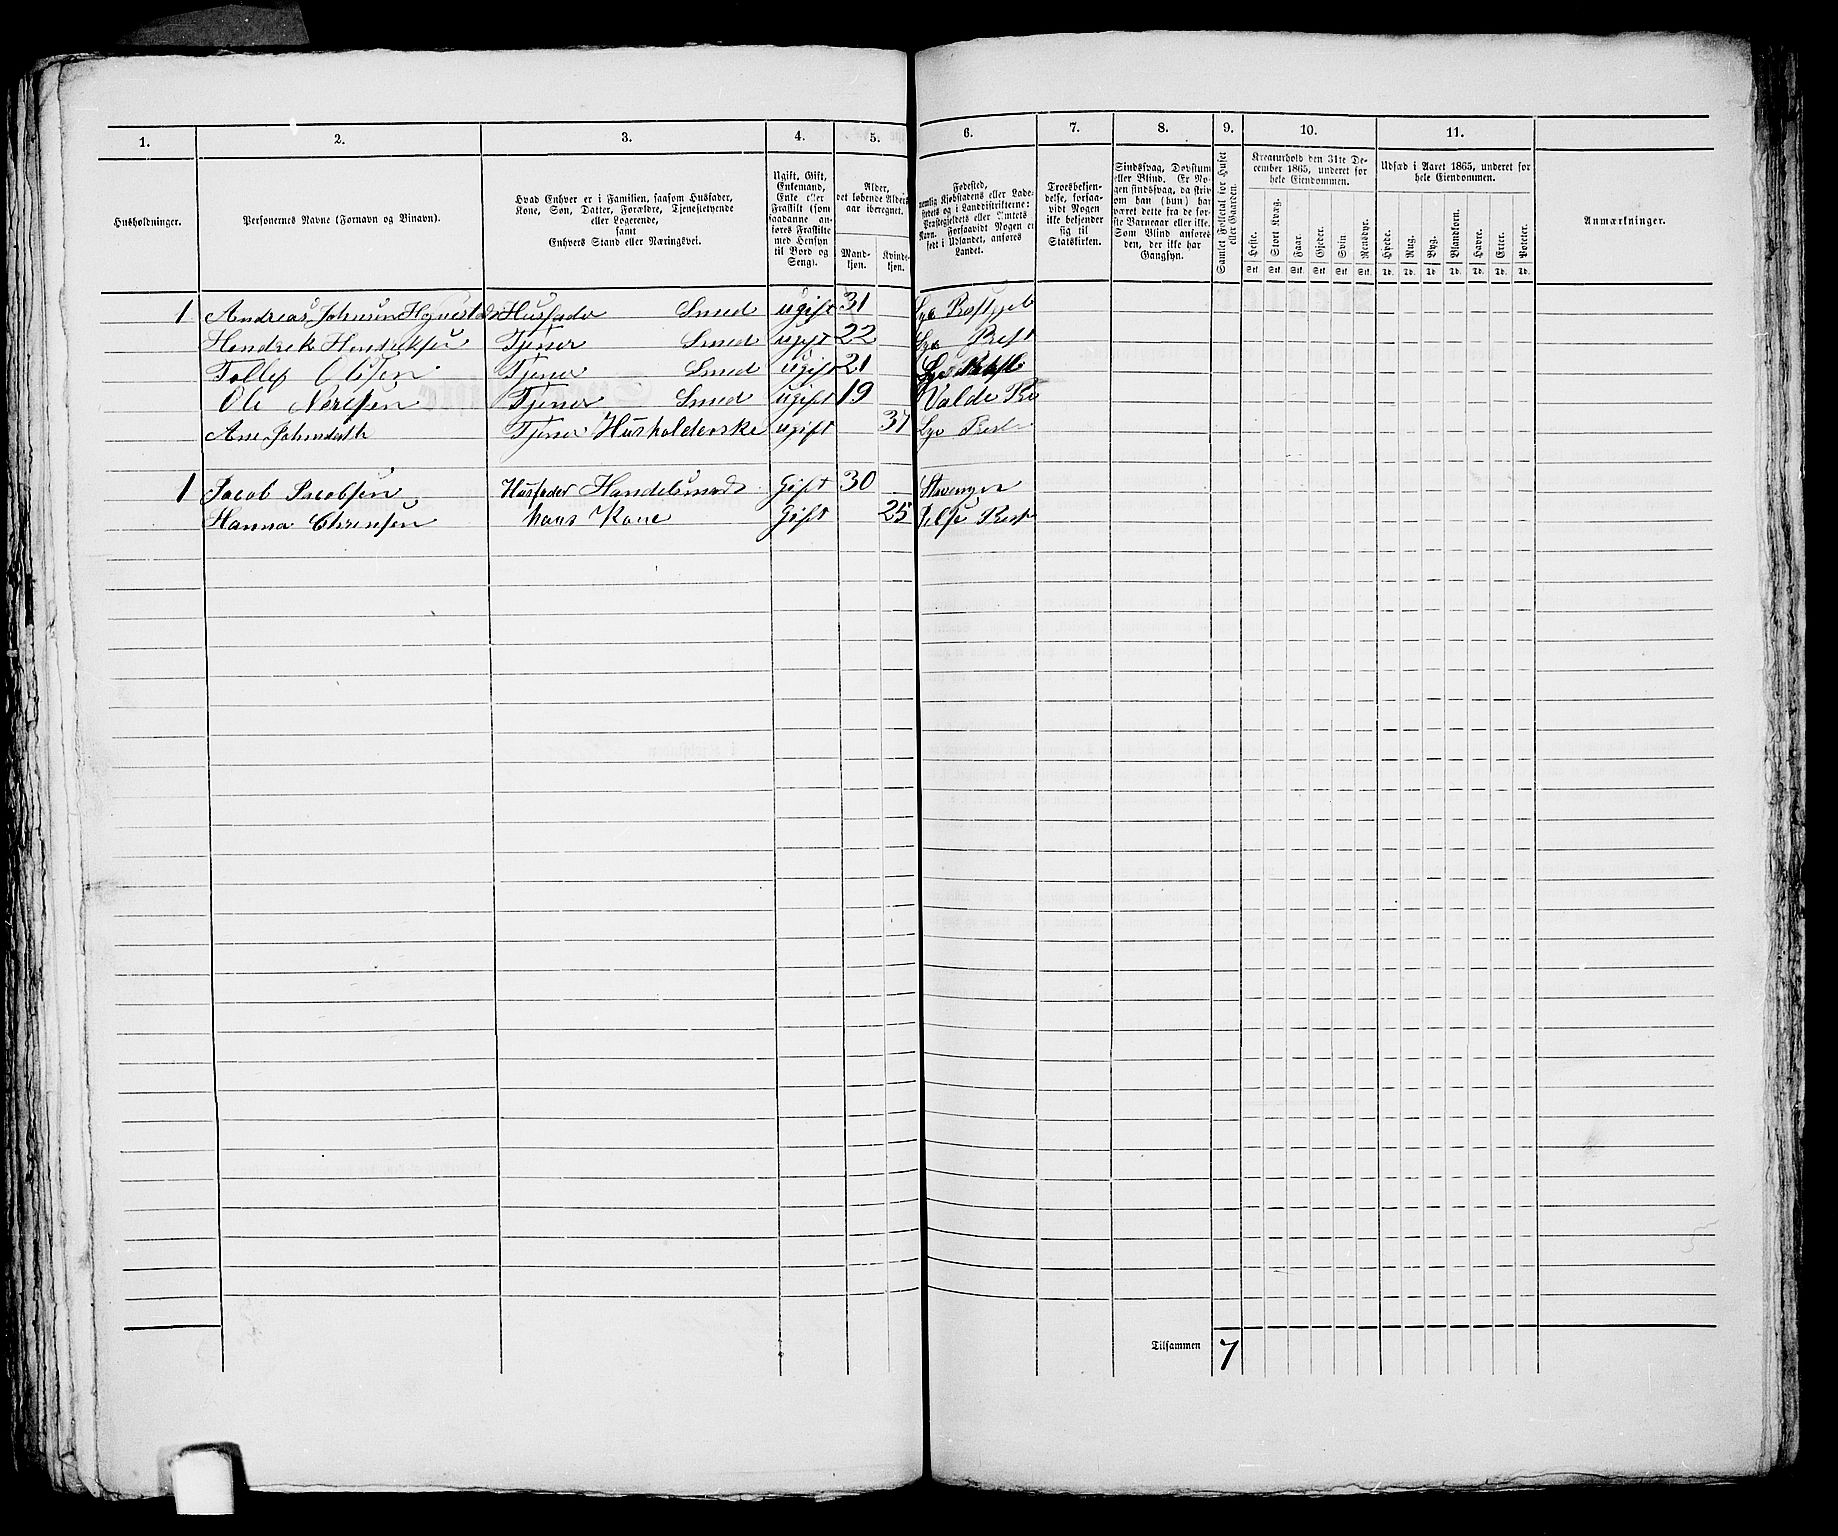 1. 2. 3. 4. 5. 6. 7. 8. 9. 10. 11.
Husholdninger.
Personernes Navne (Fornavn og Binavn).
Hvad Enhver er i Familien, saasom Husfader,
Kone, Søn, Datter, Forældre, Tjenestetyende
eller Logerende,
samt
Enhvers Stand eller Næringsvei.
Ugift, Gift,
Enkemand,
Enke eller
Fraskilt (som
saadanne an-
føres Fraskilte
med Hensyn
til Bord og
Seng).
Alder,
det løbende Alders-
aar iberegnet.
Mand-
kjøn.
Kvinde-
kjøn.
Fødested,
nemlig Kjøbstadens eller Lade-
stedets og i Landdistrikterne:
Præstegjeldets eller Amtets
Navn. Forsaavidt Nogen er
født i Udlandet, anføres
Landet.
Troesbekjen-
delse, forsaa-
vidt Nogen
ikke bekjender
sig til
Statskirken.
Sindssvag, Døvstum
eller Blind. Er No-
gen sindssvag, da skriv
om han (hun) har
været dette fra de før-
ste Barneaar eller ikke.
Som Blind anføres
den, der ikke har
Gangsyn.
Samlet Folketal for Huset
eller Gaarden.
Kreaturhold den 31te De-
cember 1865, underet for
hele Eiendommen.
Heste. Stort Kvæg. Faar. Gjeder. Svin. Rensdyr.
Stk. Stk. Stk. Stk. Stk. Stk.
Udsæd i Aaret 1865, underet for
hele Eiendommen.
Hvede. Rug. Byg. Blandkorn. Havre. Erter. Poteter.
Td. Td. Td. Td. Td. Td. Td.
Anmærkninger.
1 Andreas Johnsen Husfader Smed ugift 31
Hendrek Hendreksen Tjener Smed ugift 22 Lye Prest
Tollef Olsen Tjener Smed ugift 21 Lye
Ole Tjener Smed ugift 19
Ane Tjener Husholderske ugift 37 Lye Prest
1 Jacob Jacobsen Husfader Gift 30 Stavenger
Hanna hans Kone Gift 25 Prest
Tilsammen 7